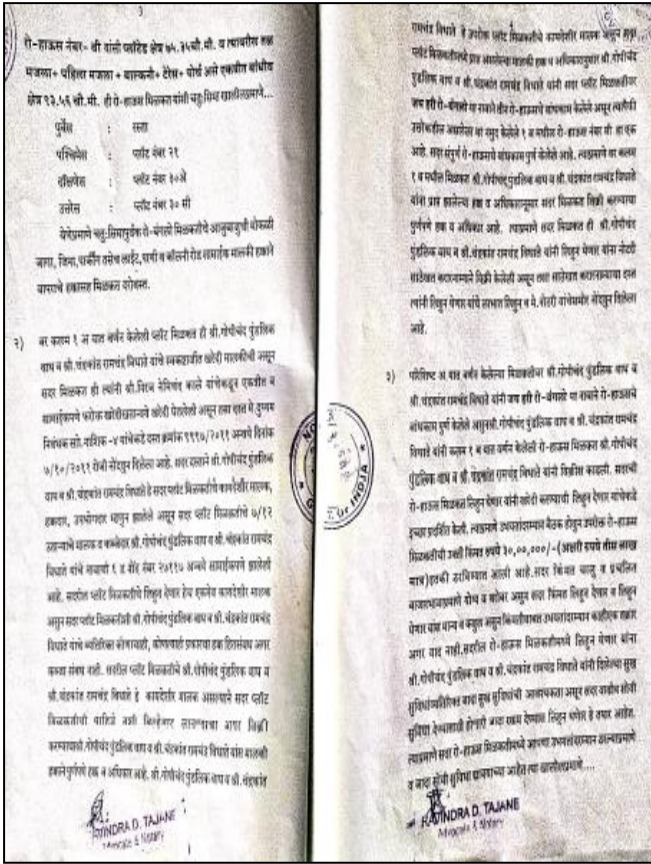 ३
रो-हाऊस नंबर- बी यांसी प्लॉटेड क्षेत्र ७५.३५चौ.मी. व त्यावरील तळ
मजला+ पहिला मजला + बाल्कनी+ टेरेस+ पोर्च असे एकत्रीत बांधीव
क्षेत्र ९३.५६ चौ.मी. ही रो-हाऊस मिळकत यांसी चतु:सिमा खालीलप्रमाणे...
पुर्वेस : रस्ता
पश्चिमेस : प्लॉट नंबर २९
दक्षिणेस : प्लॉट नंबर ३०अे
उत्तरेस : प्लॉट नंबर ३० सी
येणेप्रमाणे चतु:सिमापुर्वक रो-बंगलो मिळकतीचे आजुबाजुची मोकळी
जागा, जिना, पार्कींग तसेच लाईट, पाणी व कॉलनी रोड सामाईक मालकी हक्काने
वापराचे हक्कासह मिळकत दरोबस्त.
२) वर कलम १ अ यात वर्णन केलेली प्लॉट मिळकत ही श्री.गोपीचंद पुंडलिक
वाघ व श्री. चंद्रकांत रामचंद्र विधाते यांचे स्वकष्टार्जीत खरेदी मालकीची असून
सदर मिळकत ही त्यांनी श्री.निरव नेमिचंद काले यांचेकडून एकत्रीत व
सामाईकपणे फरोक्त खरेदीखतान्वये खरेदी घेतलेली असून त्याचा दस्त मे.दुय्यम
निबंधक सो. नाशिक -४ यांचेकडे दस्त क्रमांक ९९१०/२०११ अन्वये दिनांक
७/१०/२०११ रोजी नोंदवून दिलेला आहे. सदर दस्ताने श्री.गोपीचंद पुंडलिक
वाघ व श्री. चंद्रकांत रामचंद्र विधाते हे सदर प्लॉट मिळकतीचे कायदेशीर मालक,
हक्कदार, उपभोगदार म्हणुन झालेले असून सदर प्लॉट मिळकतीचे ७/१२
उताऱ्याचे मालक व कब्जेदार श्री.गोपीचंद पुंडलिक वाघ व श्री. चंद्रकांत रामचंद्र
विधाते यांचे नावाची अन्वये सामाईकपणे झालेली
आहे. सदरील प्लॉट मिळकतीचे लिहुन देणार हेच एकमेव कायदेशीर मालक
असुन सदर प्लॉट मिळकतीशी श्री.गोपीचंद पुंडलिक वाघ व श्री. चंद्रकांत रामचंद्र
विधाते यांचे व्यतिरिक्त कोणाचाही, कोणत्याही प्रकारचा हक्क हितसंबंध अगर
कब्जा संबंध नाही. सदरील प्लॉट मिळकतीचे श्री.गोपीचंद पुंडलिक वाघ व
श्री.चंद्रकांत रामचंद्र विधाते हे कायदेशीर मालक असल्याने सदर प्लॉट
मिळकतीची पाहिजे तशी विल्हेवाट लावण्याचा अगर विक्री
करण्याचा श्री.गोपीचंद पुंडलिक वाघ व श्री. चंद्रकांत रामचंद्र विधाते यांस मालकी
हक्काने पुर्णपणे हक्क व अधिकार आहे. श्री.गोपीचंद पुंडलिक वाघ व श्री. चंद्रकांत
RAVINDRA D. TAJANE
Advocate & Notary
रामचंद्र विधाते हे उपरोक्त प्लॉट मिळकतीचे कायदेशीर मालक असून
प्लॉट मिळकतीमध्ये प्राप्त असलेल्या मालकी हक्क व अधिकारानुसार श्री.गोपीचंद
पुंडलिक वाघ व श्री. चंद्रकांत रामचंद्र विधाते यांनी सदर प्लॉट मिळकतीवर
जय हरी रो-बंगलो या नावाने तीन रो-हाऊसचे बांधकाम केलेले असून त्यापैकी
उत्तरेकडील असलेला वर नमुद केलेले १ ब मधील रो-हाऊस नंबर बी हा एक
आहे. सदर संपुर्ण रो-हाऊसचे बांधकाम पुर्ण केलेले आहे. त्याप्रमाणे वर कलम
१ ब मधील मिळकत श्री.गोपीचंद पुंडलिक वाघ व श्री. चंद्रकांत रामचंद्र विधाते
यांना प्राप्त झालेल्या हक्क व अधिकारानुसार सदर मिळकत विक्री करण्याचा
पुर्णपणे हक्क व अधिकार आहे. त्याप्रमाणे सदर मिळकत ही श्री. गोपीचंद
पुंडलिक वाघ व श्री. चंद्रकांत रामचंद्र विधाते यांनी लिहुन घेणार यांना नोंदणी
साठेखत करारनाम्याने विक्री केलेली असून तसा साठेखत करारनाम्याचा दस्त
त्यांनी लिहुन घेणार यांचे लाभात लिहून व मे. नोटरी यांचेसमोर नोंदवून दिलेला
आहे.
३) परिशिष्ट अ यात वर्णन केलेल्या मिळकतीवर श्री.गोपीचंद पुंडलिक वाघ व
श्री.चंद्रकांत रामचंद्र विधाते यांनी जय हरी रो-बंगलो या नावाने रो-हाऊसचे
बांधकाम पुर्ण केलेले असुन श्री.गोपीचंद पुंडलिक वाघ व श्री. चंद्रकांत रामचंद्र
विधाते यांनी कलम १ ब यात वर्णन केलेली रो-हाऊस मिळकत श्री.गोपीचंद
पुंडलिक वाघ व श्री. चंद्रकांत रामचंद्र विधाते यांनी विक्रीस काढली. सदरची
रो-हाऊस मिळकत लिहुन घेणार यांनी खरेदी करण्याची लिहुन देणार यांचेकडे
इच्छा प्रदर्शित केली. त्याप्रमाणे उभयतांदरम्यान बैठक होवुन उपरोक्त रो-हाऊस
मिळकतीची उक्ती किंमत रुपये ३०,००,०००/-(अक्षरी रुपये तीस लाख
मात्र)इतकी ठरविण्यात आली आहे.सदर किंमत चालु व प्रचलित
बाजारभावाप्रमाणे योग्य व बरोबर असुन सदर किंमत लिहुन देणार व लिहुन
घेणार यांस मान्य व कबुल असुन किंमतीबाबत उभयतांदरम्यान काहीएक तक्रार
अगर वाद नाही.सदरील रो-हाऊस मिळकतीमध्ये लिहुन घेणार यांना
श्री.गोपीचंद पुंडलिक वाघ व श्री. चंद्रकांत रामचंद्र विधाते यांनी दिलेल्या सुख
सुविधांव्यतिरिक्त जादा सुख सुविधांची आवश्यकता असुन सदर वाढीव सोयी
सुविधा देण्यासाठी होणारी जादा रक्कम देण्यास लिहुन घेणार हे तयार आहेत.
त्याप्रमाणे सदर रो-हाऊस मिळकतीमध्ये आपणा उभयतांदरम्यान ठरल्याप्रमाणे
व जादा सोयी सुविधा द्यावयाच्या आहेत त्या खालीलप्रमाणे....
RAVINDRA D. TAJANE
Advocate & Notary
OF INDIA